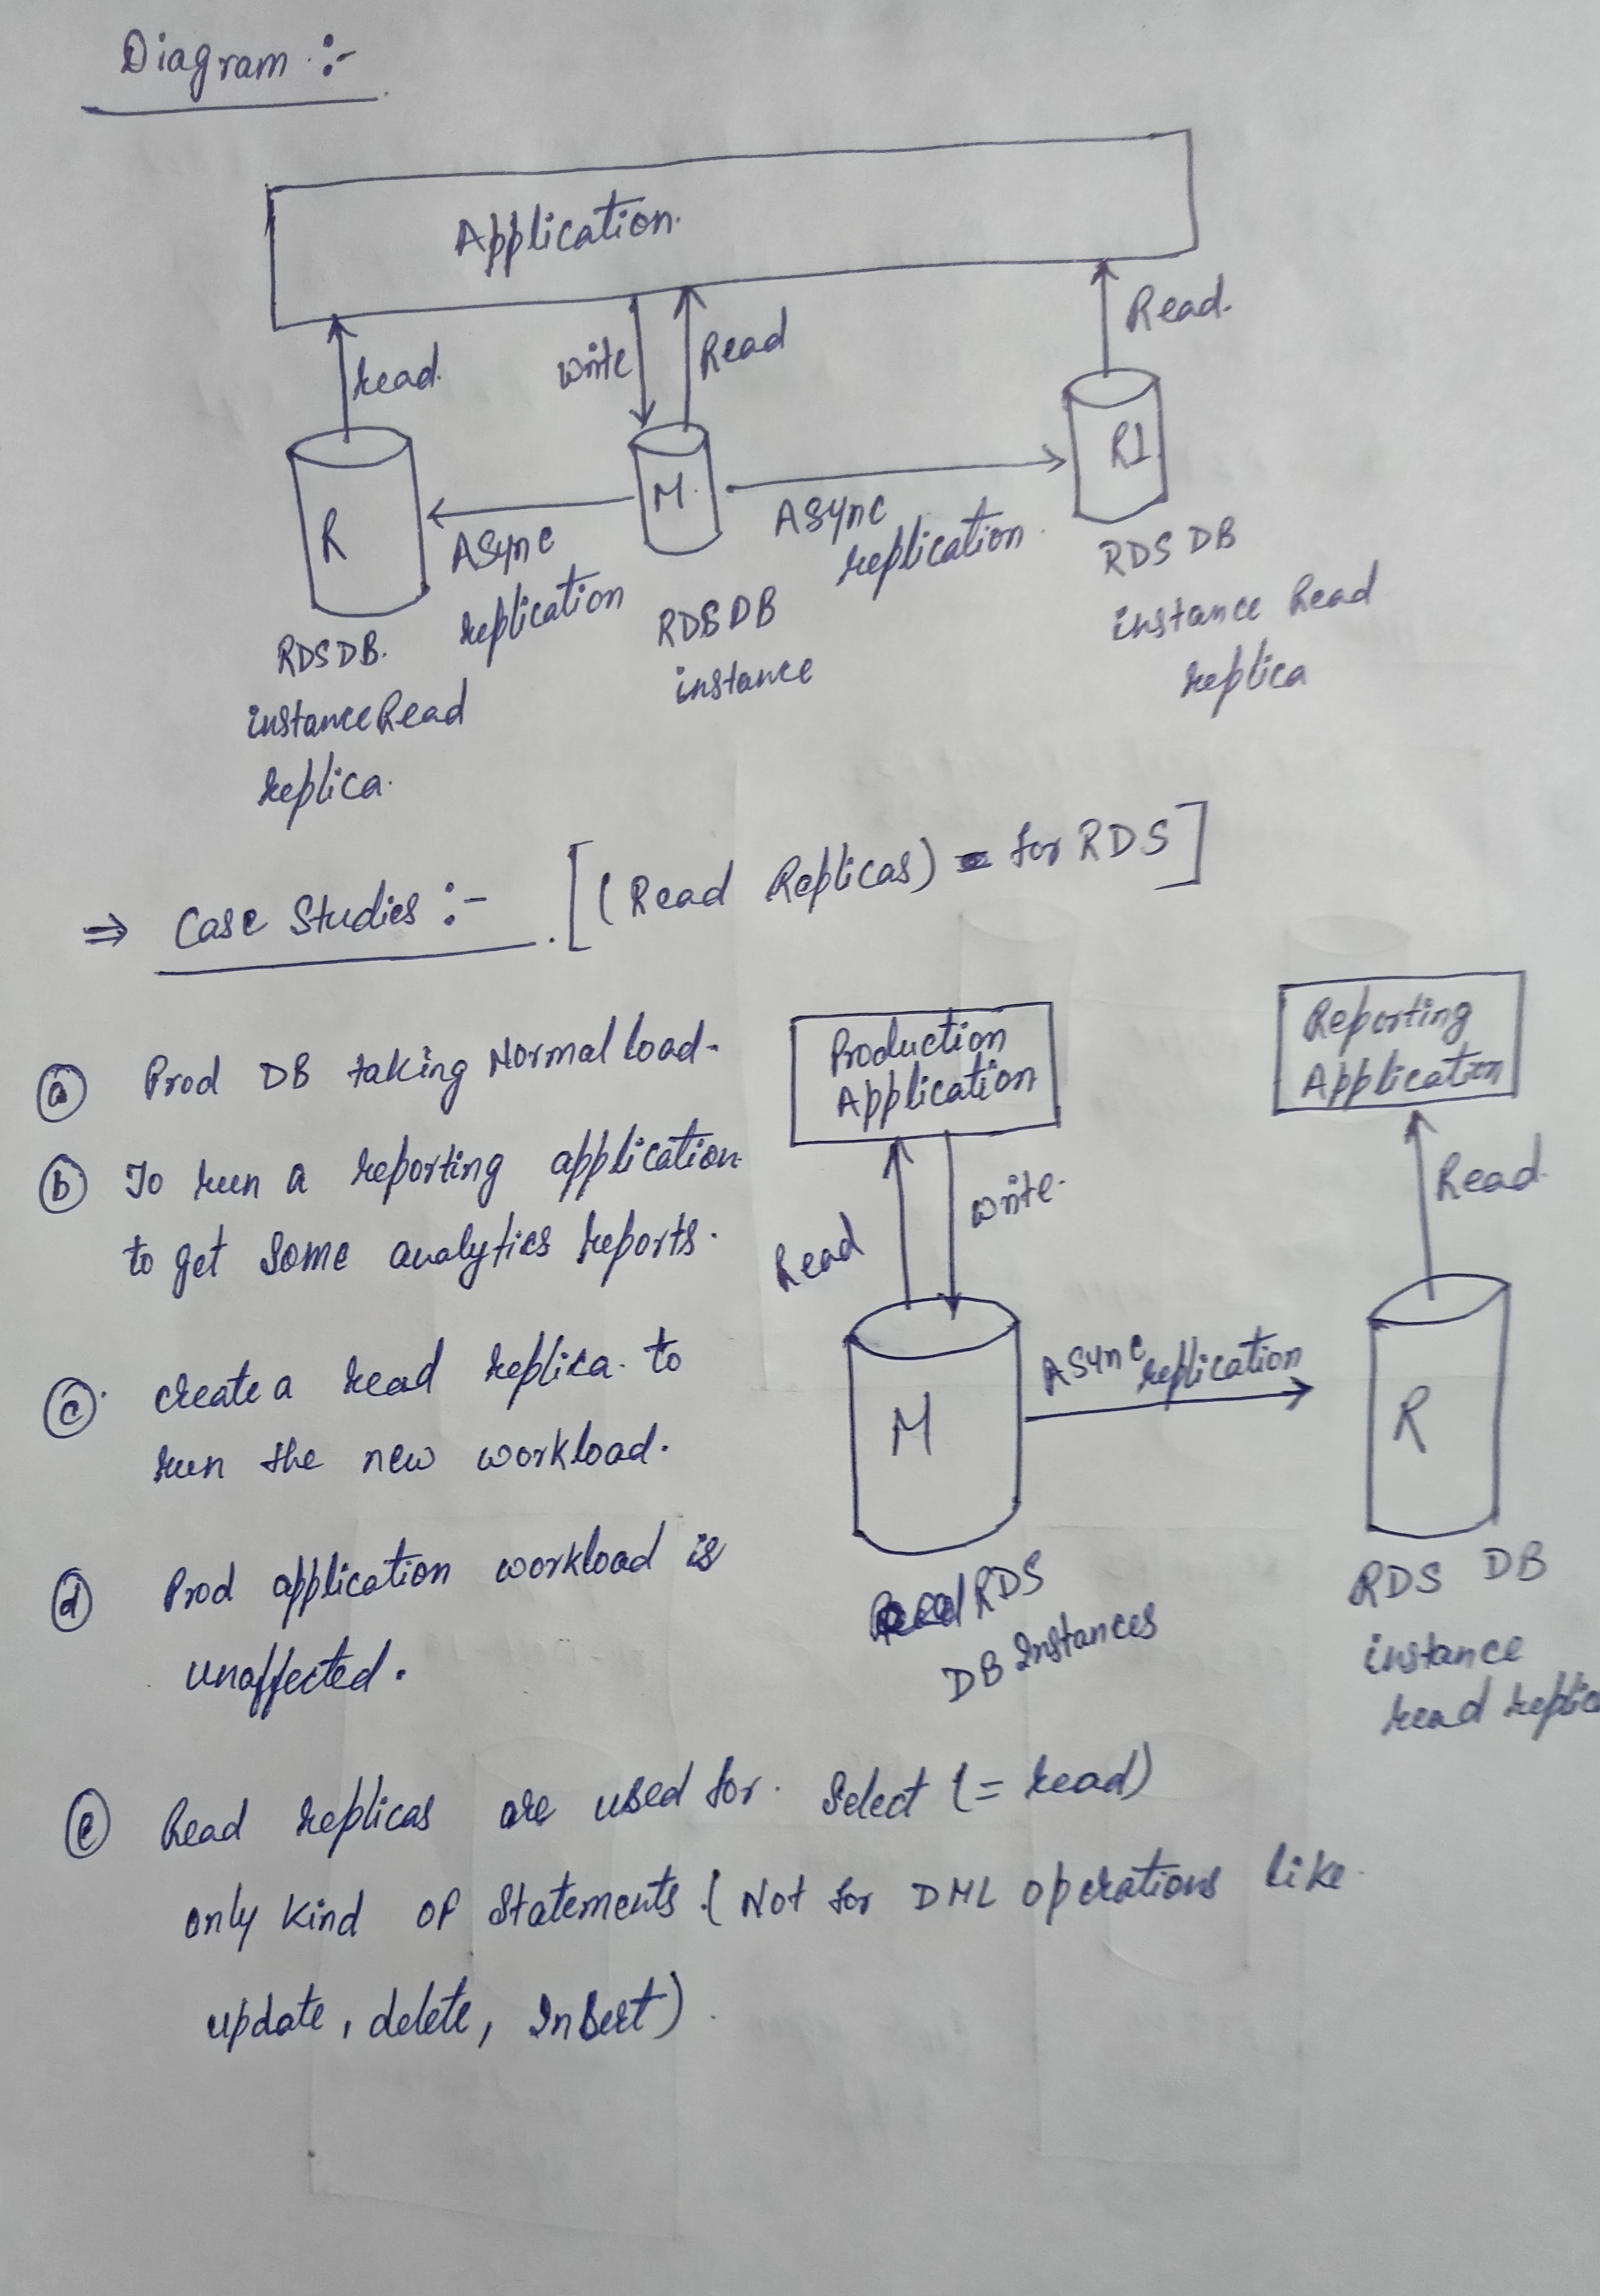 Diagram :-
Application.
Read.
write
Read
Read.
R
M.
R1
Async
replication
Async
replication.
RDS DB.
instance Read
replica.
RDS DB
instance
RDS DB
instance Read
replica
⇒ Case Studies :- . [(Read Replicas) - for RDS]
(a) Prod DB taking Normal load.
(b) To run a reporting application
to get some analytics reports.
(c) create a read replica. to
run the new workload.
(d) Prod application workload is
unaffected.
Production
Application
Reporting
Application
Read
write.
Read.
M
Async replication
R
RDS
DB Instances
RDS DB
instance
read replica
(e) Read replicas are used for. Select (= read)
only kind of statements. (Not for DML operations like
update, delete, Insert).